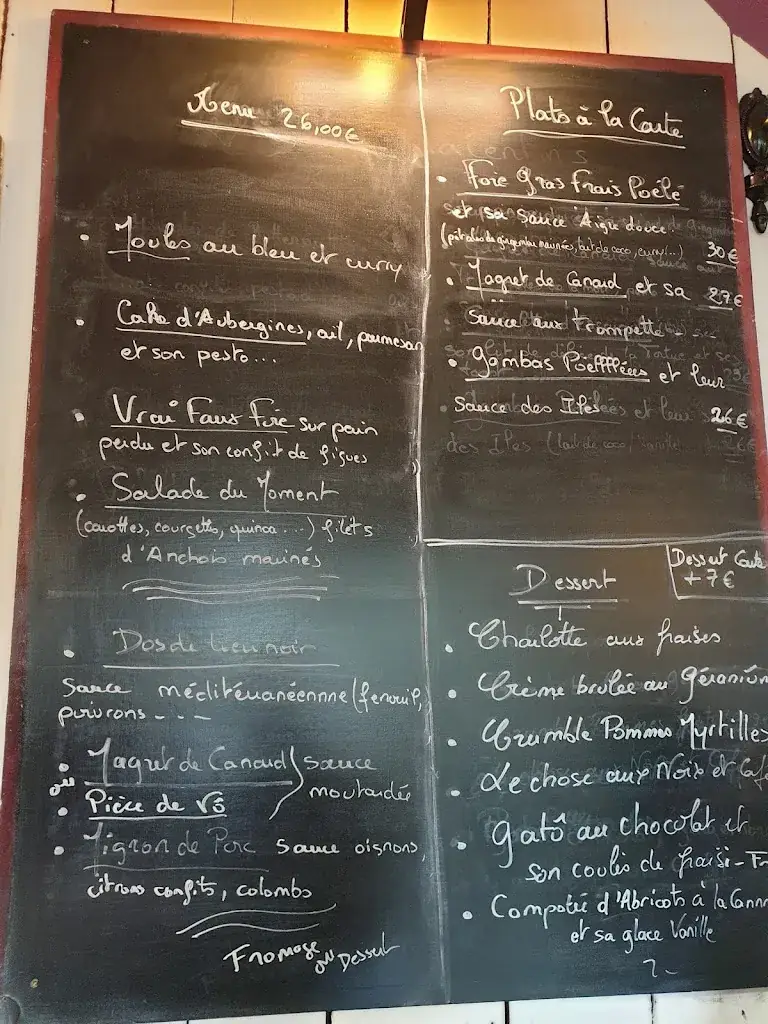 Menu 26,00€
• Moules au bleu et curry
• Cake d'Aubergines, ail, parmesan
et son pesto...
• Vrai Faux Foie sur pain
perdu et son confit de figues
• Salade du Moment
(carottes, courgette, quinoa...) filets
d'Anchois marinés
• Dos de lieu noir
Sauce méditéranéennne (fenouil,
poivrons - - -
• Magret de Canard
ou
• Pièce de Vô
sauce
moutardée
• Mignon de Porc sauce oignons,
citrons confits, colombo
Fromage ou Dessert
Plats à la Carte
• Foie Gras Frais Poêlé
et sa sauce Aigre douce
(pétales de gingembre marinées, lait de coco, curry...) 30€
• Magret de Canard et sa 27€
sauce aux Trompette - - -
• Gambas Poêlffffées et leur
sauce des Iles 26€
Dessert
Dessert Carte
+7€
• Charlotte aux fraises
• Crème brulée au Géranium
• Crumble Pommes Myrtilles
• Le chose aux Noix et Café
• Gatô au chocolat et
son coulis de fraise - Fr
• Compotée d'Abricots à la Cann
et sa glace Vanille